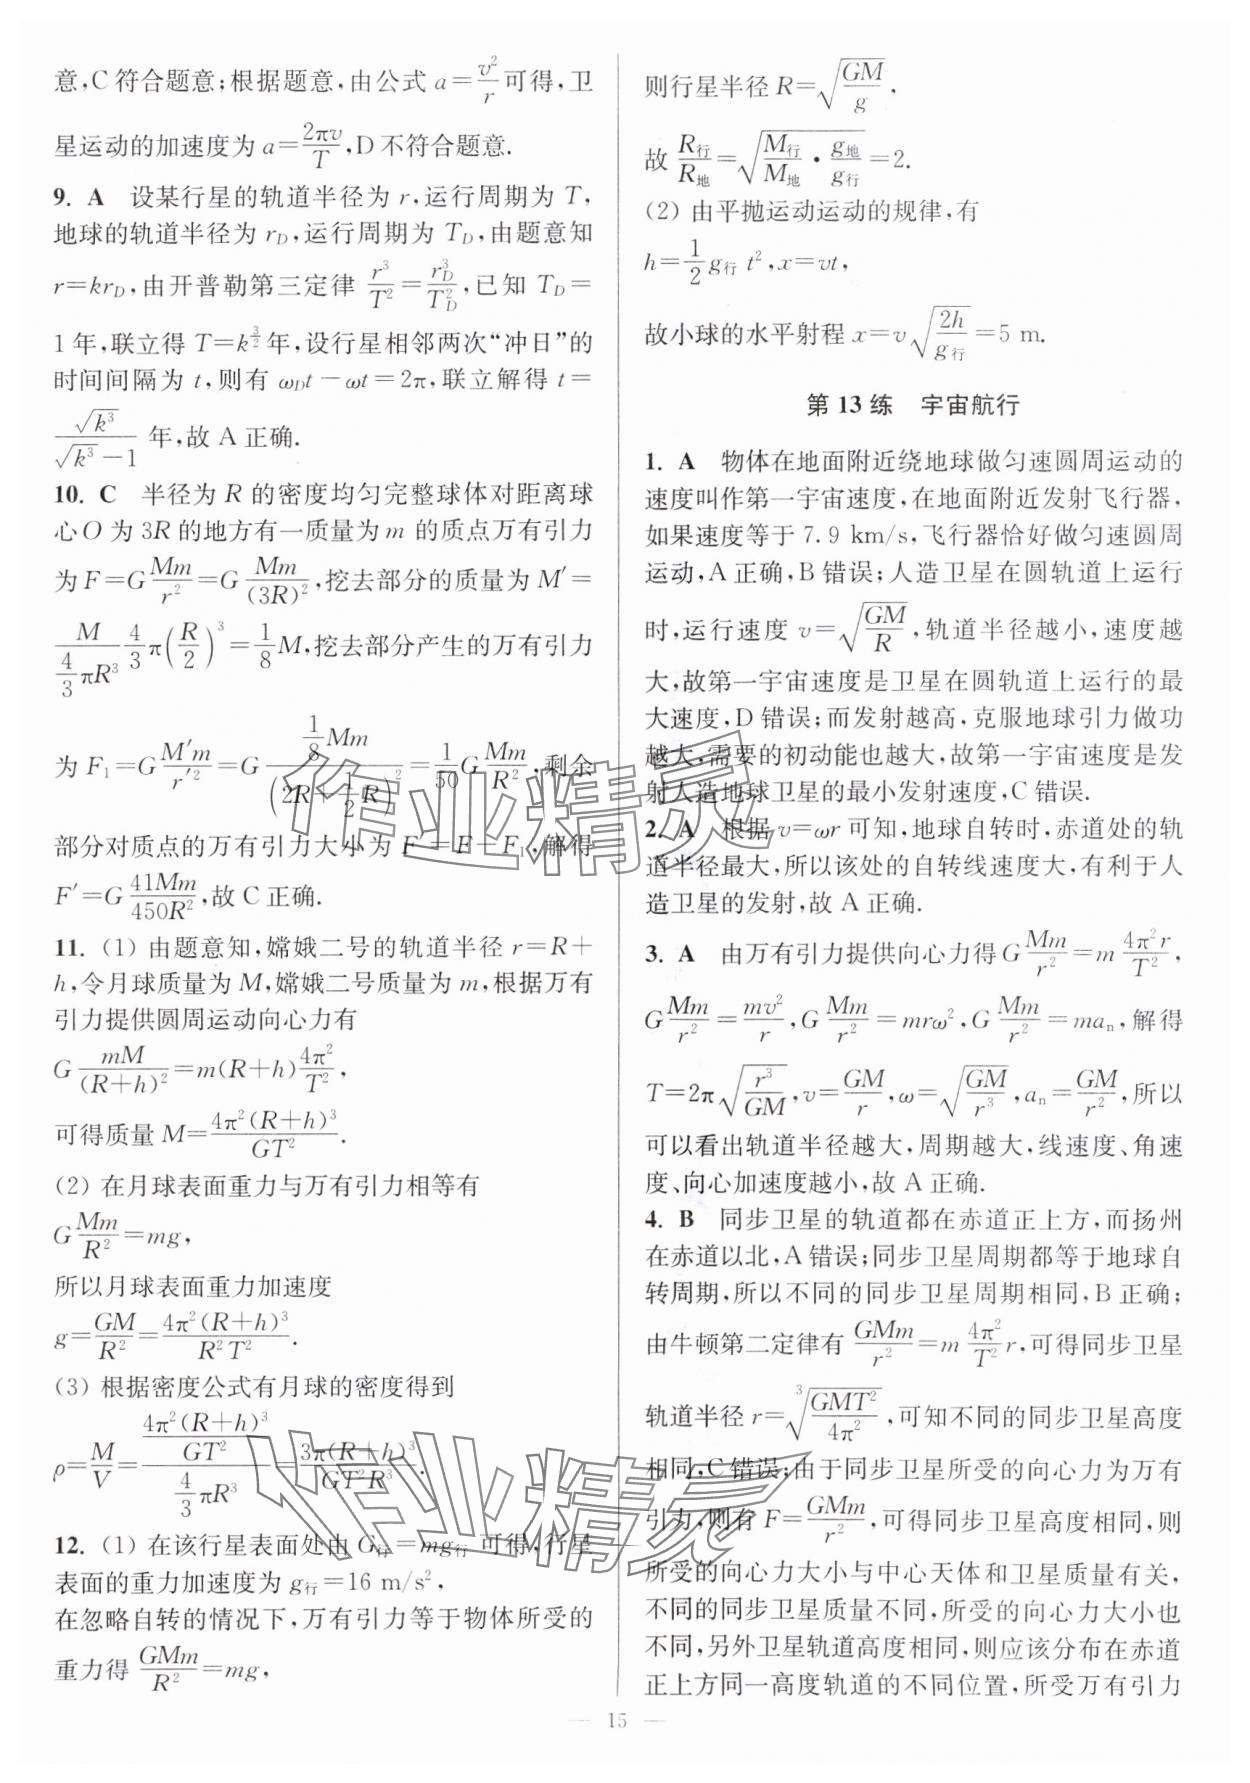 意,C符合题意;根据题意,由公式 a=v²/r 可得,卫
星运动的加速度为 a=2πv/T,D不符合题意.
9. A 设某行星的轨道半径为 r,运行周期为 T,
地球的轨道半径为 r_D,运行周期为 T_D,由题意知
r=kr_D,由开普勒第三定律 r³/T²=r_D³/T_D²,已知 T_D=
1年,联立得 T=k^(3/2)年,设行星相邻两次“冲日”的
时间间隔为 t,则有 ω_Dt-ωt=2π,联立解得 t=
√k³/(√k³-1) 年,故 A 正确.
10. C 半径为 R 的密度均匀完整球体对距离球
心 O 为 3R 的地方有一质量为 m 的质点万有引力
为 F=G Mm/r²=G Mm/(3R)²,挖去部分的质量为 M′=
M/(4/3 πR³) 4/3 π(R/2)³=1/8 M,挖去部分产生的万有引力
为 F₁=G M′m/r′²=G (1/8 Mm)/(2R+1/2 R)²=1/50 G Mm/R²,剩余
部分对质点的万有引力大小为 F′=F-F₁,解得
F′=G 41Mm/450R²,故 C 正确.
11. (1) 由题意知,嫦娥二号的轨道半径 r=R+
h,令月球质量为 M,嫦娥二号质量为 m,根据万有
引力提供圆周运动向心力有
G mM/(R+h)²=m(R+h)4π²/T²,
可得质量 M=4π²(R+h)³/GT².
(2) 在月球表面重力与万有引力相等有
G Mm/R²=mg,
所以月球表面重力加速度
g=GM/R²=4π²(R+h)³/R²T².
(3) 根据密度公式有月球的密度得到
ρ=M/V=(4π²(R+h)³/GT²)/(4/3 πR³)=3π(R+h)³/GT²R³.
12. (1) 在该行星表面处由 G行=mg行 可得,行星
表面的重力加速度为 g行=16 m/s²,
在忽略自转的情况下,万有引力等于物体所受的
重力得 GMm/R²=mg,
则行星半径 R=√(GM/g),
故 R行/R地=√(M行/M地 • g地/g行)=2.
(2) 由平抛运动运动的规律,有
h=1/2 g行 t²,x=vt,
故小球的水平射程 x=v√(2h/g行)=5 m.
第13练 宇宙航行
1. A 物体在地面附近绕地球做匀速圆周运动的
速度叫作第一宇宙速度,在地面附近发射飞行器,
如果速度等于 7.9 km/s,飞行器恰好做匀速圆周
运动,A正确,B错误;人造卫星在圆轨道上运行
时,运行速度 v=√(GM/R),轨道半径越小,速度越
大,故第一宇宙速度是卫星在圆轨道上运行的最
大速度,D错误;而发射越高,克服地球引力做功
越大,需要的初动能也越大,故第一宇宙速度是发
射人造地球卫星的最小发射速度,C错误.
2. A 根据 v=ωr 可知,地球自转时,赤道处的轨
道半径最大,所以该处的自转线速度大,有利于人
造卫星的发射,故 A 正确.
3. A 由万有引力提供向心力得 G Mm/r²=m 4π²r/T²,
G Mm/r²=mv²/r,G Mm/r²=mrω²,G Mm/r²=ma_n,解得
T=2π√(r³/GM),v=GM/r,ω=√(GM/r³),a_n=GM/r²,所以
可以看出轨道半径越大,周期越大,线速度、角速
度、向心加速度越小,故 A 正确.
4. B 同步卫星的轨道都在赤道正上方,而扬州
在赤道以北,A错误;同步卫星周期都等于地球自
转周期,所以不同的同步卫星周期相同,B正确;
由牛顿第二定律有 GMm/r²=m 4π²/T² r,可得同步卫星
轨道半径 r=³√(GMT²/4π²),可知不同的同步卫星高度
相同,C错误;由于同步卫星所受的向心力为万有
引力,则有 F=GMm/r²,可得同步卫星高度相同,则
所受的向心力大小与中心天体和卫星质量有关,
不同的同步卫星质量不同,所受的向心力大小也
不同,另外卫星轨道高度相同,则应该分布在赤道
正上方同一高度轨道的不同位置,所受万有引力
— 15 —
作业精灵
作业精灵